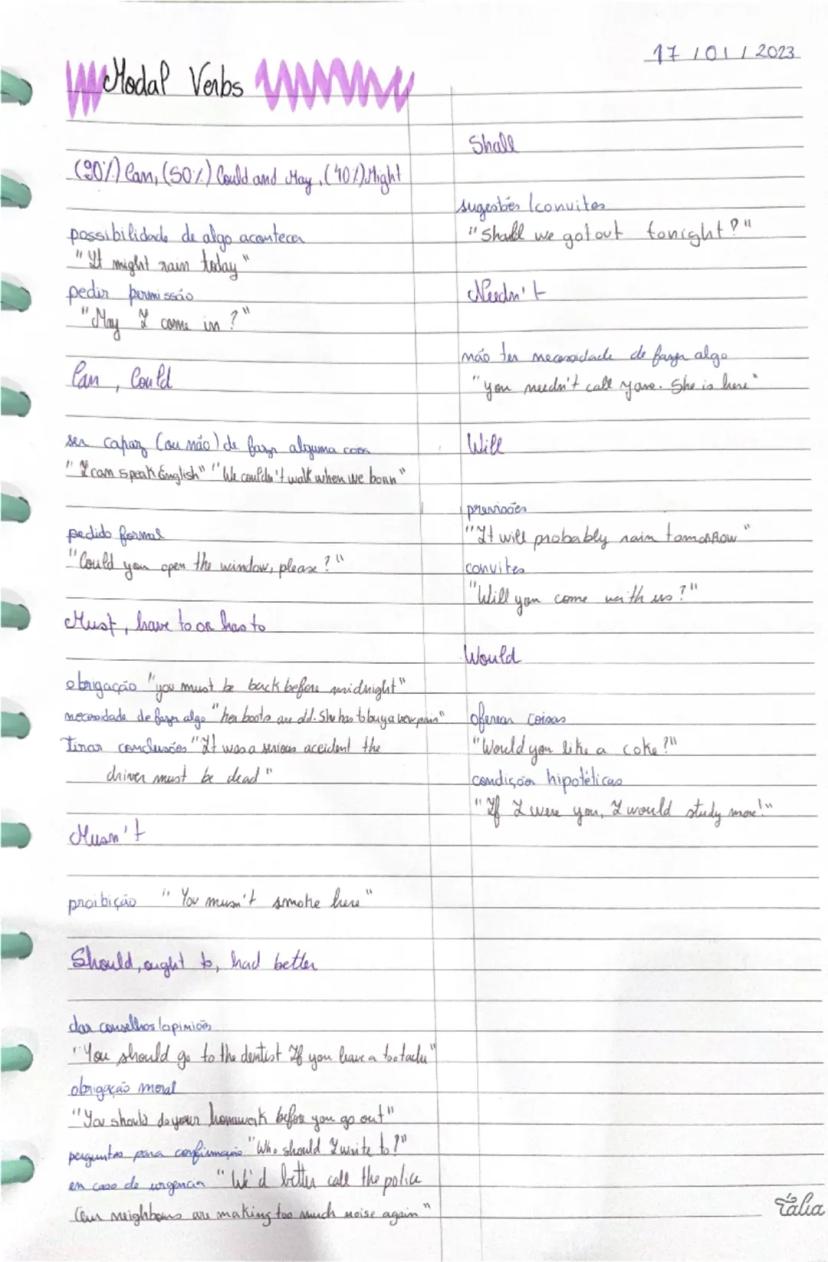 17/01/2023
Modal Verbs
(90%) Can, (50%) Could and May, (40%) Might
possibilidade de algo acontecer
"It might rain today"
pedir permissão
"May I come in?"
Can, Could
ser capaz (ou não) de fazer alguma coisa
"I can speak English" "We couldn't walk when we born"
pedido formal
"Could you open the window, please?"
Must, have to or has to
obrigação "you must be back before midnight"
necessidade de fazer algo "her boots are old. She has to buy a new pair"
Tirar conclusões "It was a serious accident the
driver must be dead"
Musn't
proibição "You musn't smoke here"
Should, ought to, had better
dar conselhos/opiniões
"You should go to the dentist If you have a tootache"
obrigação moral
"You should do your homework before you go out"
perguntas para confirmação "Who should I write to?"
em caso de urgência "We'd better call the police
(our neighbours are making too much noise again"
Shall
sugestões/convites
"Shall we got out tonight?"
Needn't
não ter necessidade de fazer algo
"you needn't call. She is here"
Will
previsões
"It will probably rain tomorrow"
convites
"Will you come with us?"
Would
oferecer coisas
"Would you like a coke?"
condições hipotéticas
"If I were you, I would study more!"
tália